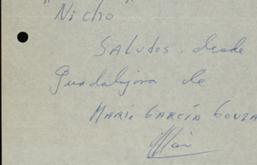 "Nicho"
Saludos desde
Guadalajara de
MARIO GARCÍA GONZA